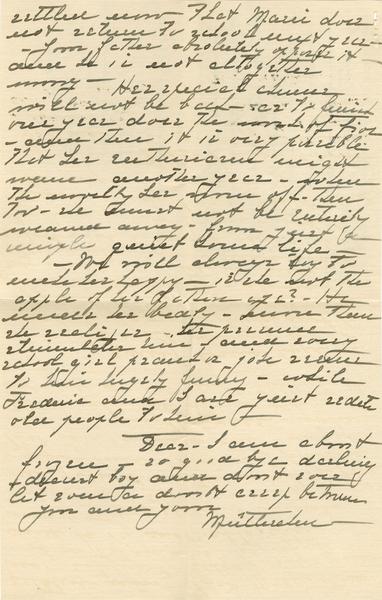 settled now - that Marie does
not return to school next year -
- Your father absolutely opposes it
and so is it not altogether
money - Her special
will not be back - or to
one year does the work of five
- and then it is very possible
that her enthusiasm might
wane another year - when
the novelty has worn off - then
too - she must not be entirely
weaned away - from just
simple quiet home life -
- We will always try to
make her happy - is she not the
apple of her father's eye? - He
needs her badly - more than
she realizes - her presence
stimulates him - and every
school girl prank or joke seems
to him hugely funny - while
Frederic and I are just
old people to him
Dear - I am about
frozen - so good bye darling
dearest boy and don't ever
let even a doubt creep between
you and yours
Mütterchen